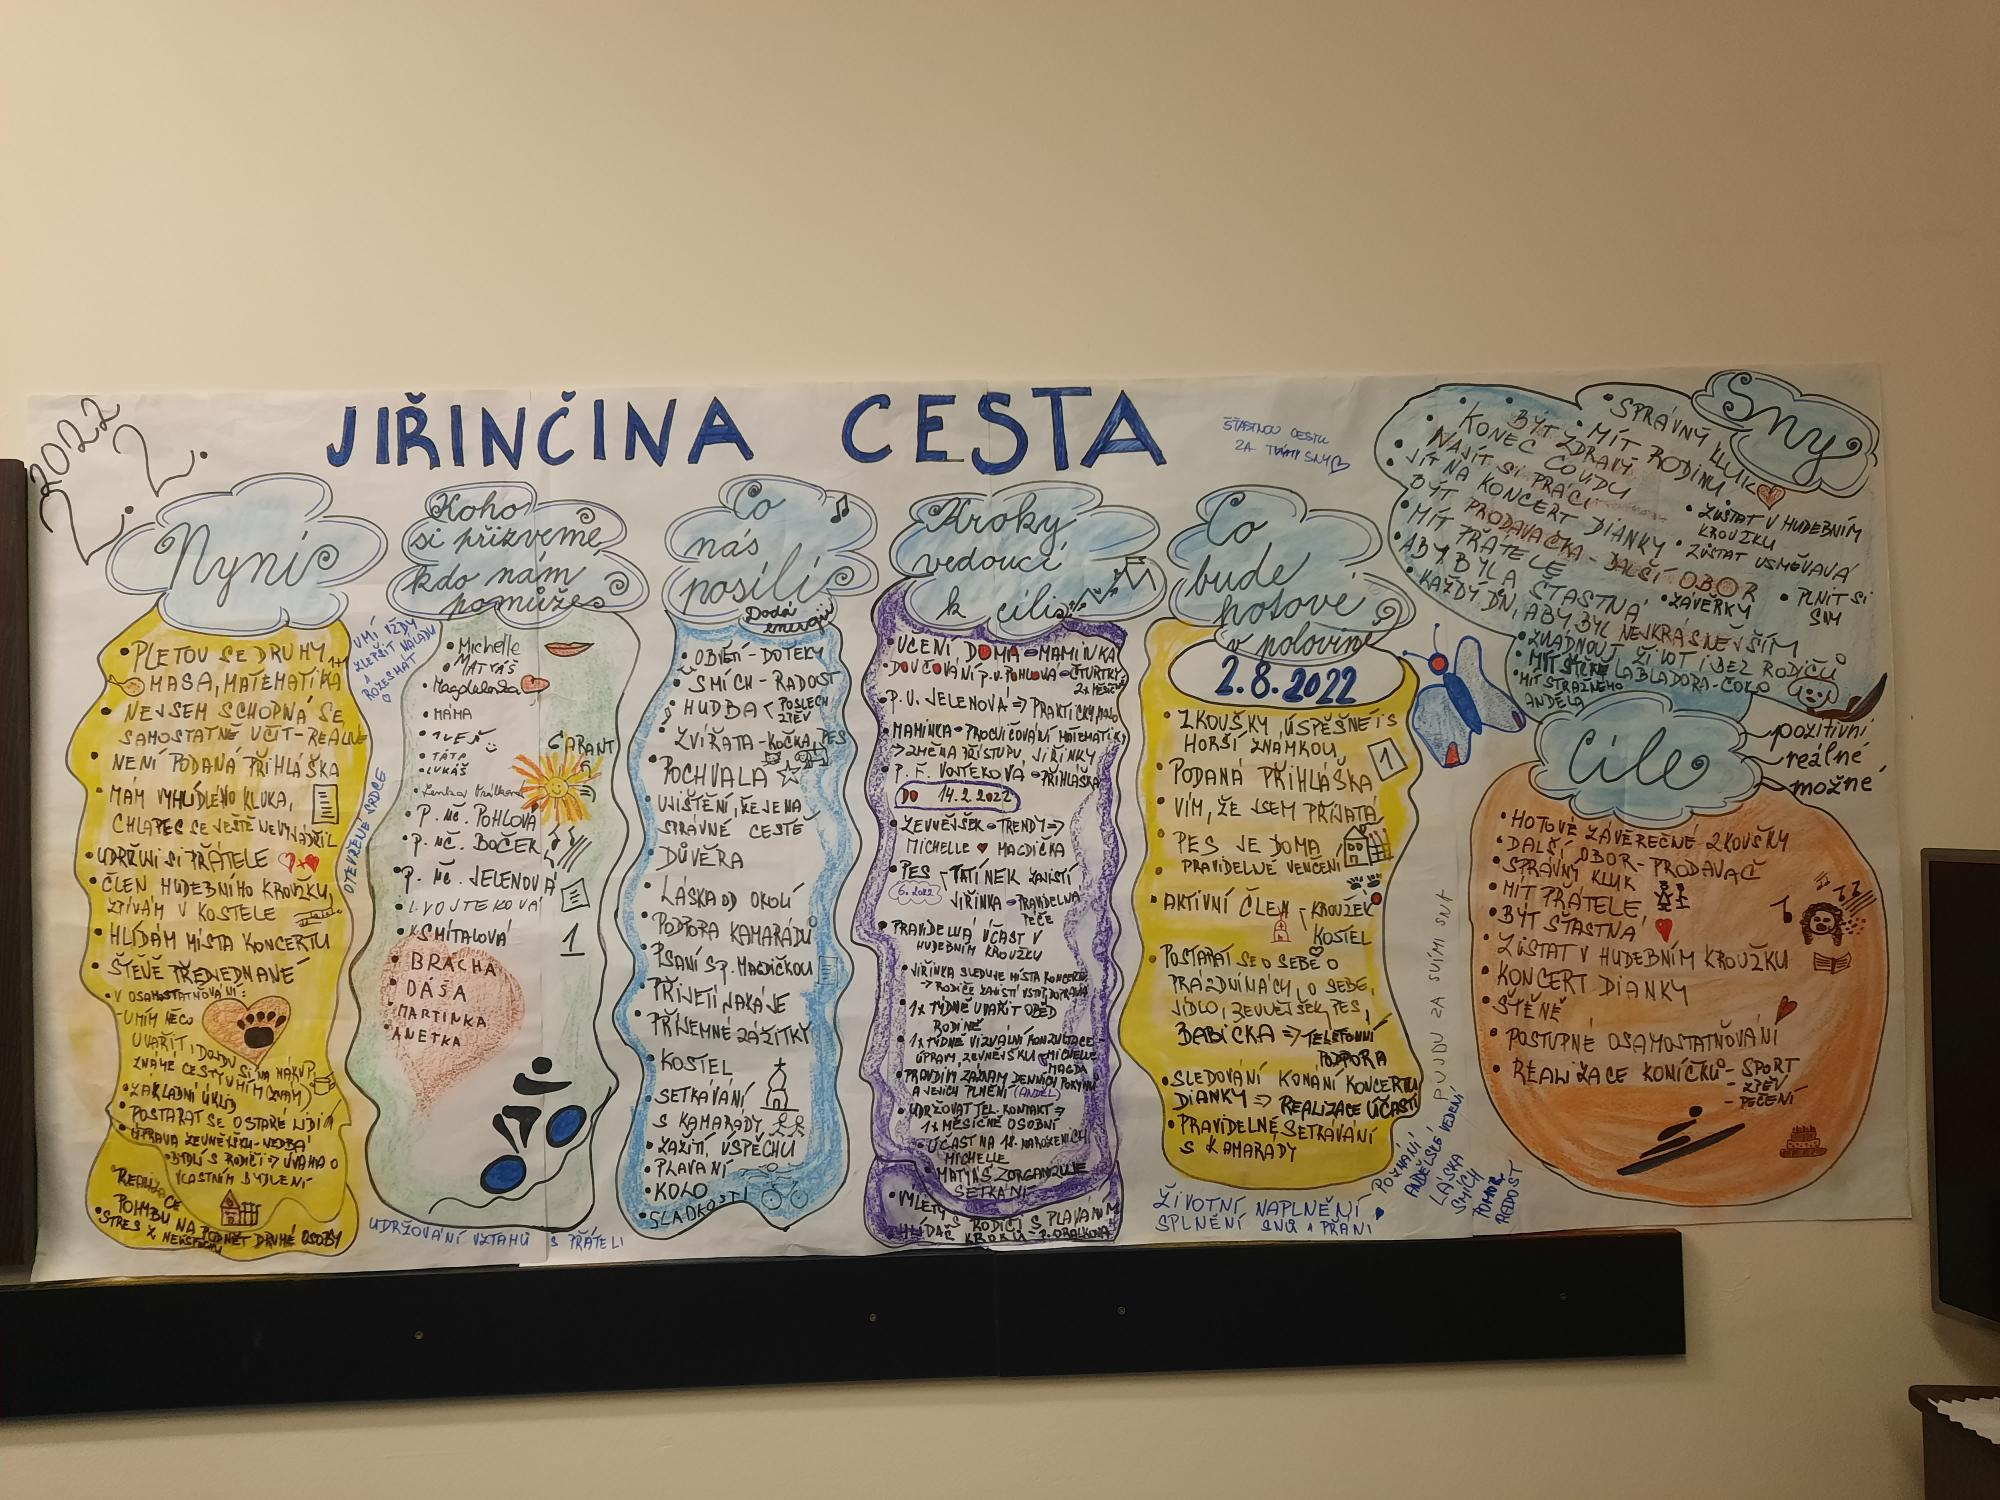 2.2.
2022
JIŘINČINA CESTA
ŠŤASTNOU CESTU
ZA TVÝMI SNY
Nyní
PLETOU SE DRUHY
MASA, MATEMATIKA 1+1
NEJSEM SCHOPNÁ SE
SAMOSTATNĚ UČIT-REÁLNĚ
NENÍ PODANÁ PŘIHLÁŠKA
MÁM VYHLÍDLÉHO KLUKA,
CHLAPEC SE JEŠTĚ NEVYJÁDŘIL
UDRŽUJI SI PŘÁTELE
ČLEN HUDEBNÍHO KROUŽKU,
ZPÍVÁM V KOSTELE
HLÍDÁM MÍSTA KONCERTU
ŠTĚNĚ PŘEDJEDNANÉ
V OSAMOSTATŇOVÁNÍ:
-UMÍM NĚCO
UVAŘIT, DOJDU SI NA NÁKUP,
ZNÁMÉ CESTY UMÍM (ZNÁM)
ZÁKLADNÍ ÚKLID
POSTARAT SE O STARÉ LIDI
ÚPRAVA ZEVNĚJŠKU-NEDBÁ
BYDLÍ S RODIČI ⇒ ÚVAHA O
VLASTNÍM BYDLENÍ
REALIZACE
POHYBU NA PODNĚT DRUHÉ OSOBY
STRES Z
Koho
si přizveme,
kdo nám
pomůže
UMÍ VŽDY
ZLEPŠIT NÁLADU
A
ROZESMÁT
OTEVŘENÉ SRDCE
Michelle
MATYÁŠ
Magdalenka
MÁMA
TÁTA
LUKÁŠ
GARANT
P. UČ. POHLOVÁ
P. UČ. BOČEK
P. UČ. JELENOVÁ
VOJTEKOVÁ
SMÍTALOVÁ
1
BRÁCHA
DÁŠA
MARTINKA
ANETKA
UDRŽOVÁNÍ VZTAHŮ S PŘÁTELI
Co
nás
posílí
Dodá
energii
OBJETÍ - DOTEKY
SMÍCH - RADOST
HUDBA < POSLECH
ZPĚV
ZVÍŘATA - KOČKA, PES
POCHVALA
UJIŠTĚNÍ, ŽE JE NA
SPRÁVNÉ CESTĚ
DŮVĚRA
LÁSKA OD OKOLÍ
PODPORA KAMARÁDŮ
PSANÍ S P. MAGDIČKOU
PŘIJETÍ JAKÁ JE
PŘÍJEMNÉ ZÁŽITKY
KOSTEL
SETKÁVÁNÍ
S KAMARÁDY
ZAŽITÍ ÚSPĚCHŮ
PLAVÁNÍ
KOLO
SLADKOSTI
Kroky
vedoucí
k cíli
UČENÍ DOMA - MAMINKA
DOUČOVÁNÍ P.U. POHLOVÁ - ČTVRTKY
2x MĚSÍČNĚ
P. U. JELENOVÁ ⇒ PRAKTICKY
MAMINKA - PROCVIČOVÁNÍ MATEMATIKY
→ ZMĚNA PŘÍSTUPU, JIŘINKY
P. Ř. VOJTEKOVÁ - PŘIHLÁŠKA
DO 14.2.2022
ZEVNĚJŠEK - TRENDY ⇒
MICHELLE ♥ MAGDIČKA
PES - TATÍNEK ZAJISTÍ
6.2022
JIŘINKA - PRAVIDELNÁ
PÉČE
PRAVIDELNÁ ÚČAST V
HUDEBNÍM KROUŽKU
JIŘINKA SLEDUJE MÍSTA KONCERTŮ
→ RODIČE ZAJISTÍ VSTUP, DOPRAVA
1x TÝDNĚ UVAŘIT OBĚD
RODINĚ
1x TÝDNĚ VIZUÁLNÍ KONZULTACE -
ÚPRAV, ZEVNĚJŠKU MICHELLE
MAGDA
PRAVDIVÝ ZÁZNAM DENNÍCH POKYNŮ
A JEJICH PLNĚNÍ (ANDĚL)
UDRŽOVAT TEL. KONTAKT ⇒
1x MĚSÍČNĚ OSOBNÍ
ÚČAST NA 18. NAROZENINÁCH
MICHELLE
MATYÁŠ ZORGANIZUJE
SETKÁNÍ
VÝLETY S RODIČI S PLAVÁNÍM
HLÍDAČ KROKŮ - P. ORALKOVÁ
Co
bude
hotové
v polovině
2.8.2022
ZKOUŠKY, ÚSPĚŠNĚ I S
HORŠÍ ZNÁMKOU
1
PODANÁ PŘIHLÁŠKA
VÍM, ŽE JSEM PŘIJATÁ
PES JE DOMA
PRAVIDELNÉ VENČENÍ
AKTIVNÍ ČLEN - KROUŽEK
KOSTEL
POSTARAT SE O SEBE O
PRÁZDNINÁCH, O SEBE,
JÍDLO, ZEVNĚJŠEK, PES,
BABIČKA ⇒ TELEFONNÍ
PODPORA
SLEDOVÁNÍ KONÁNÍ KONCERTU
DIANKY ⇒ REALIZACE ÚČASTI
PRAVIDELNÉ SETKÁVÁNÍ
S KAMARÁDY
ŽIVOTNÍ NAPLNĚNÍ
SPLNĚNÍ SNŮ A PŘÁNÍ
PŮJDU ZA SVÝMI SNY
POZNÁNÍ
ANDĚLSKÉ VEDENÍ
LÁSKA
SMÍCH
HUMOR
RADOST
Sny
SPRÁVNÝ KLUK
MÍT RODINU
BÝT ZDRAVÝ
KONEC COVIDU
NAJÍT SI PRÁCI
JÍT NA KONCERT DIANKY
BÝT PRODAVAČKA - DALŠÍ OBOR
MÍT PŘÁTELE
ABY BYLA ŠŤASTNÁ
KAŽDÝ DEN, ABY BYL NEJKRÁSNEJŠÍM
ZŮSTAT V HUDEBNÍM
KROUŽKU
ZŮSTAT USMĚVAVÁ
ZÁVĚRKY
PLNIT SI
SNY
ZVLÁDNOUT ŽIVOT I BEZ RODIČŮ
MÍT ŠTĚNĚ LABLADORA-ČOKO
MÍT STRÁŽNÉHO
ANDĚLA
Cíle
pozitivní
reálné
možné
HOTOVÉ ZÁVĚREČNÉ ZKOUŠKY
DALŠÍ OBOR - PRODAVAČ
SPRÁVNÝ KLUK
MÍT PŘÁTELE
BÝT ŠŤASTNÁ
ZŮSTAT V HUDEBNÍM KROUŽKU
KONCERT DIANKY
ŠTĚNĚ
POSTUPNÉ OSAMOSTATŇOVÁNÍ
REALIZACE KONÍČKŮ - SPORT
- ZPĚV
- PEČENÍ